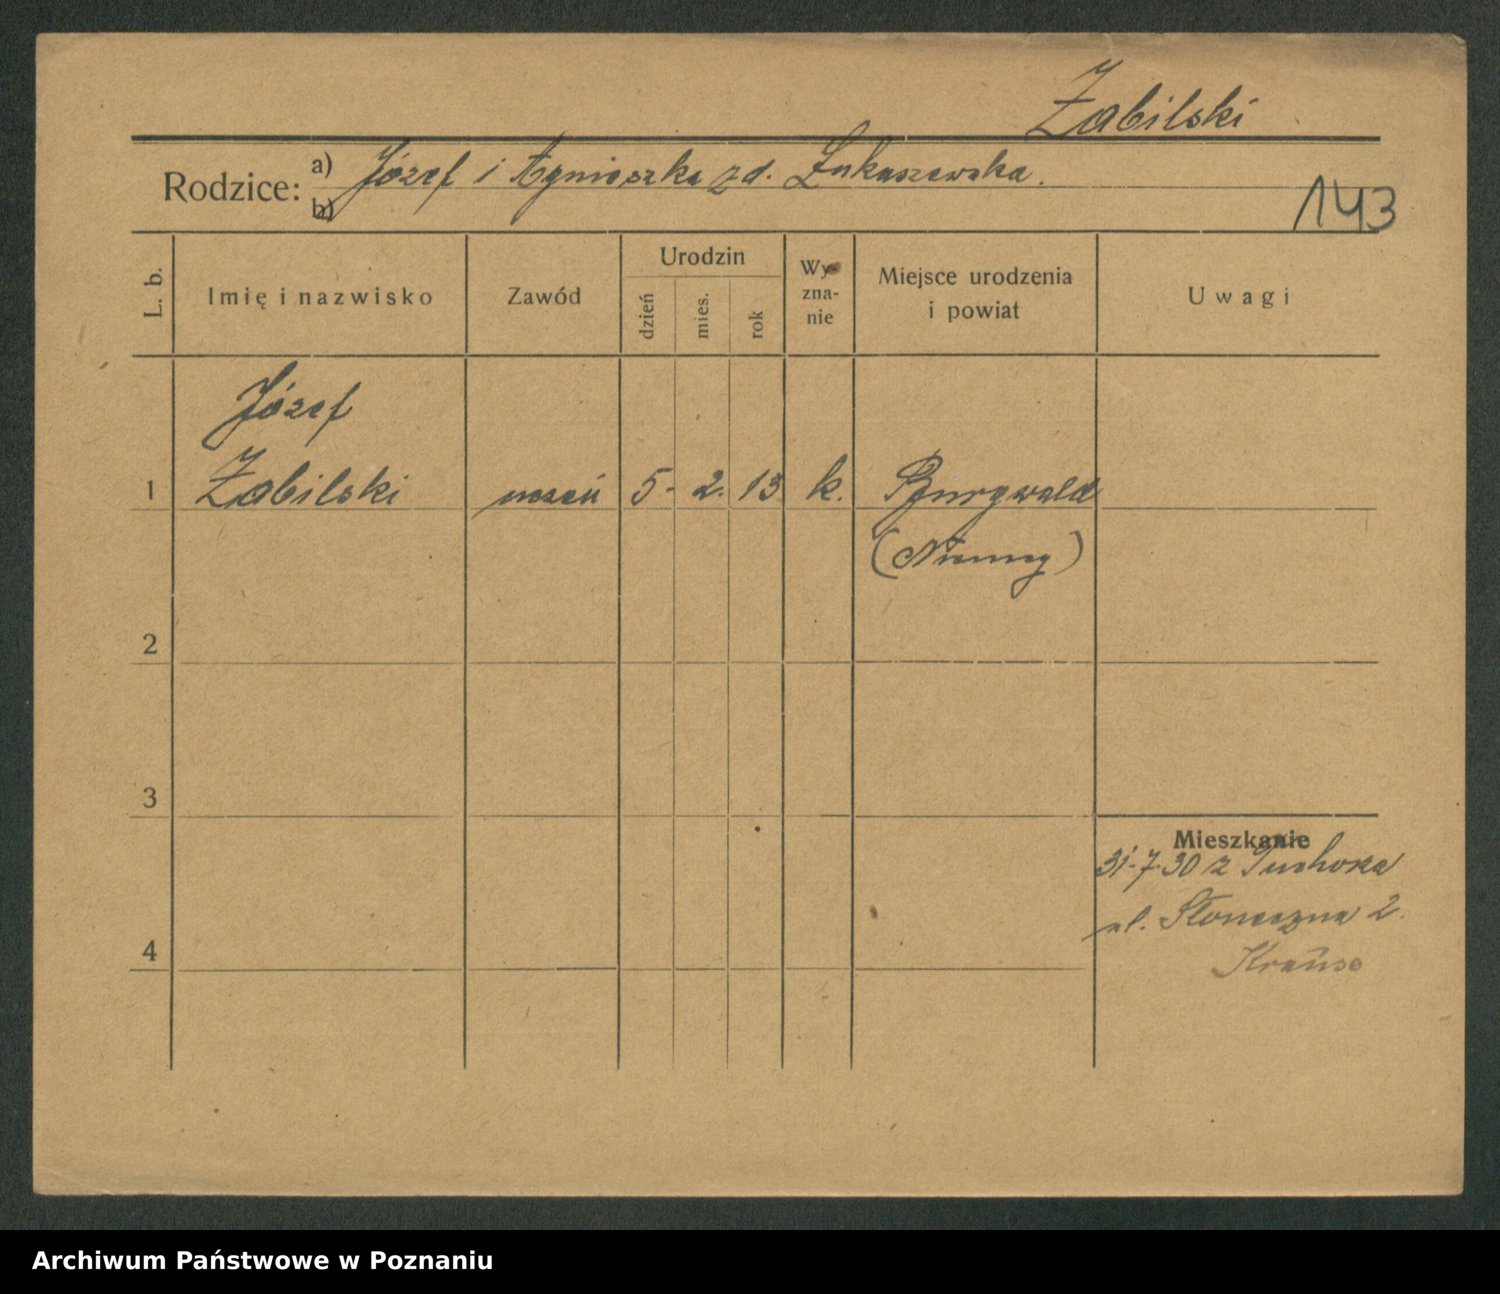 Żabilski
Rodzice: a) Józef i Agnieszka zd. Łukaszewska.
b)
143
L. b.
Imię i nazwisko
Zawód
Urodzin
dzień
mies.
rok
Wy-
zna-
nie
Miejsce urodzenia
i powiat
Uwagi
Józef
1 Żabilski uczeń 5. 2. 13 k. Burgwald
(Niemcy)
2
3
Mieszkanie
31-7-30 z Puchowa
ul. Słoneczna 2.
4
Krause
Archiwum Państwowe w Poznaniu